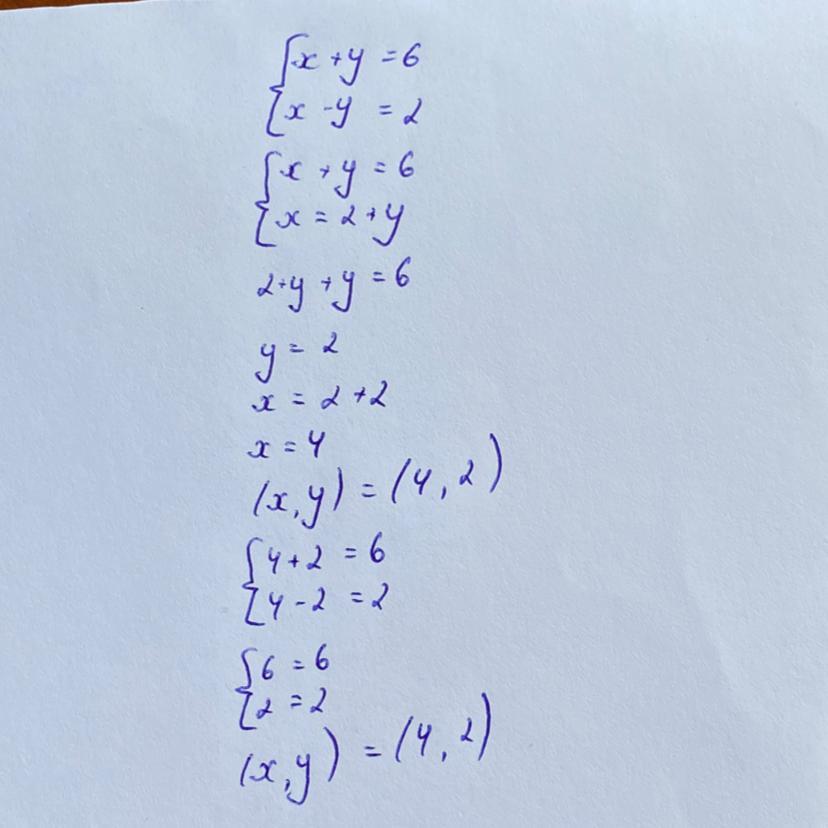 {x + y = 6
{x - y = 2
{x + y = 6
{x = 2 + y
2+y + y = 6
y = 2
x = 2 + 2
x = 4
(x, y) = (4, 2)
{4 + 2 = 6
{4 - 2 = 2
{6 = 6
{2 = 2
(x, y) = (4, 2)